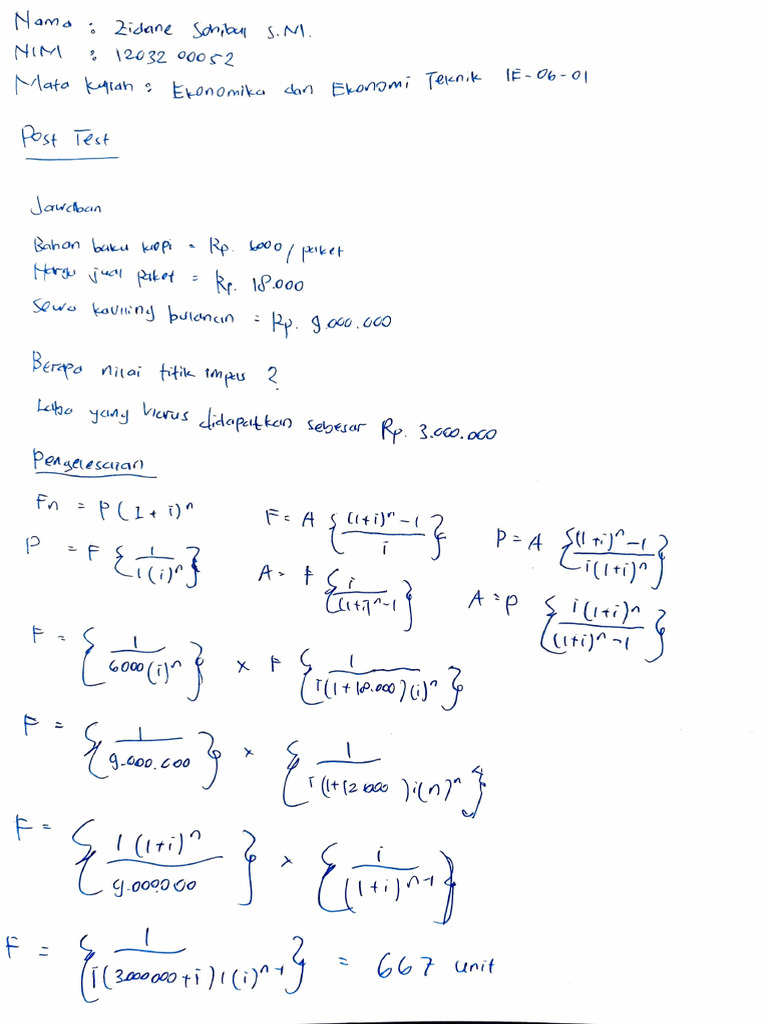 Nama : Zidane Sohibul S.M.
NIM : 12032 00052
Mata Kuliah : Ekonomika dan Ekonomi Teknik IE-06-01
Post Test
Jawaban
Bahan baku kopi = Rp. 6000 / paket
Harga jual paket = Rp. 18.000
Sewa kavling bulanan = Rp. 9.000.000
Berapa nilai titik impas ?
Laba yang harus didapatkan sebesar Rp. 3.000.000
Penyelesaian
Fn = P(1 + i)^n F = A {((1+i)^n - 1)/i} P = A {((1+i)^n - 1)/(i(1+i)^n)}
P = F {1/(1(i)^n)} A = F {i/((1+i)^n - 1)} A = P {(i(1+i)^n)/((1+i)^n - 1)}
F = {1/(6000(i)^n)} × F {1/(i(1+18.000)(i)^n)}
F = {1/(9.000.000)} × {1/(i(1+12.000)i(n)^n)}
F = {(1(1+i)^n)/(9.000000)} × {i/((1+i)^n-1)}
F = {1/(i(3.000000+i)1(i)^n-1)} = 667 unit